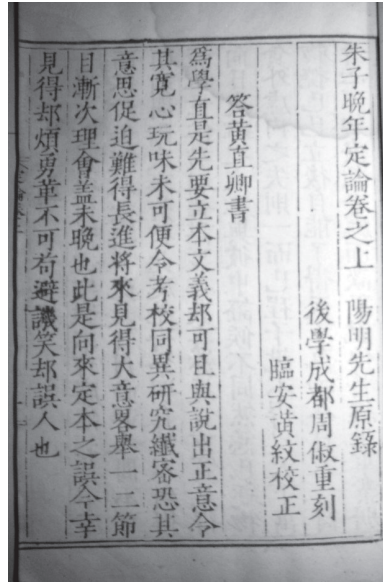 朱子晚年定論卷之上　陽明先生原錄
後學成都周俶重刻
臨安黃紋校正
答黃直卿書
爲學直是先要立本文義却可且與說出正意令
其寬心玩味未可便令考校同異研究纖宻恐其
意思促迫難得長進將來見得大意畧舉一二節
目漸次理會盖未晚也此是向來定本之誤今幸
見得却煩勇革不可苟避譏笑却誤人也